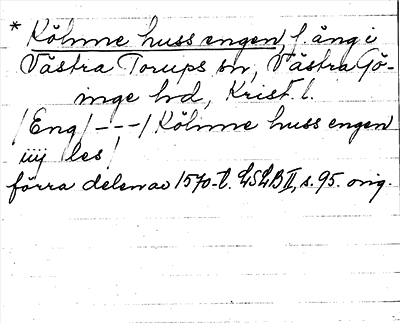 * Kölnne huss engen, f. äng i
Västra Torups sn, Västra Gö-
inge hd, Krist. l.
/Eng/ - - - / Kölnne huss engen
iiij les /
förra delen av 1570-t. LSLB II, s. 95. orig.